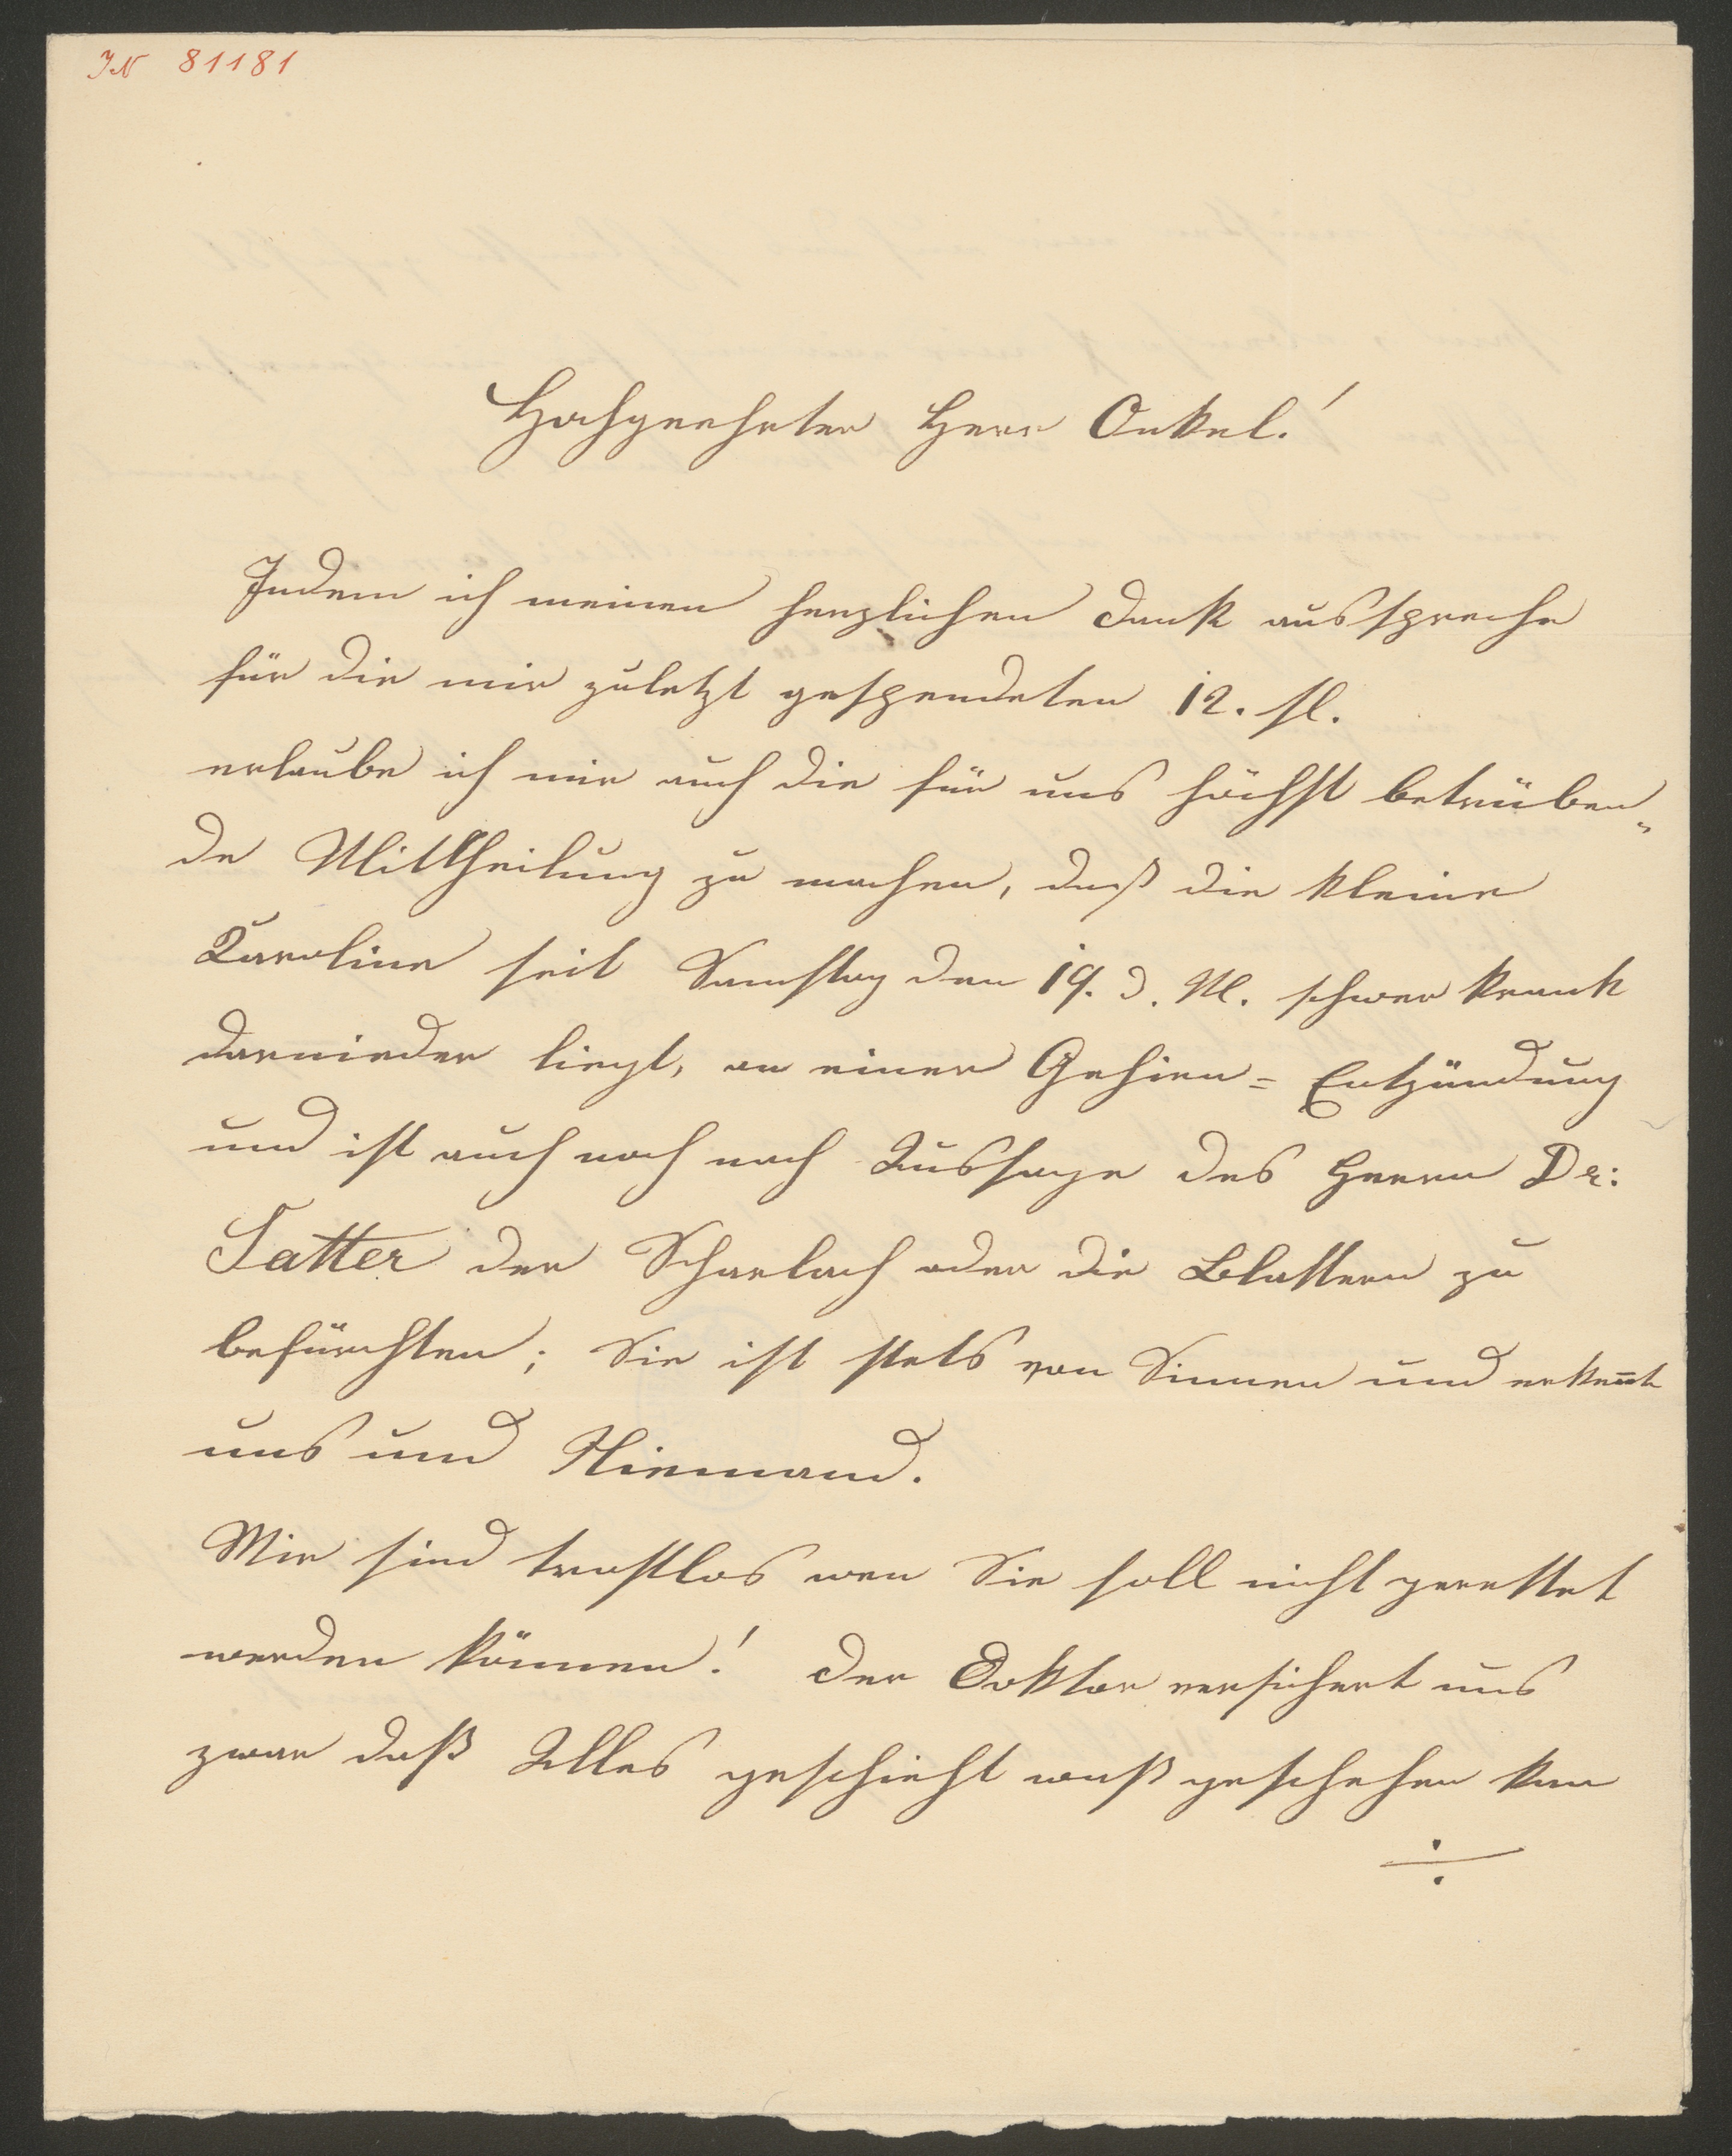 IN 81181
Hochgeehrter Herr Onkel!
Indem ich meinen herzlichen Dank ausspreche
für die mir zuletzt gespendeten 12. fl.
erlaube ich mir auch die für uns höchst betrüben„
de Mittheilung zu machen, daß die kleine
Karoline seit Samstag den 19. d. M. schwer krank
darnieder liegt, an einer Gehirn= Entzündung
und ist auch noch nach Aussage des Herrn Dr:
Satter der Scharlach oder die Blattern zu
befürchten; Sie ist stets von Sinnen und erkennt
uns und Niemand.
Wir sind trostlos wen Sie soll nicht gerettet
werden können! Der Doktor versichert uns
zwar daß Alles geschieht waß geschehen kan
÷